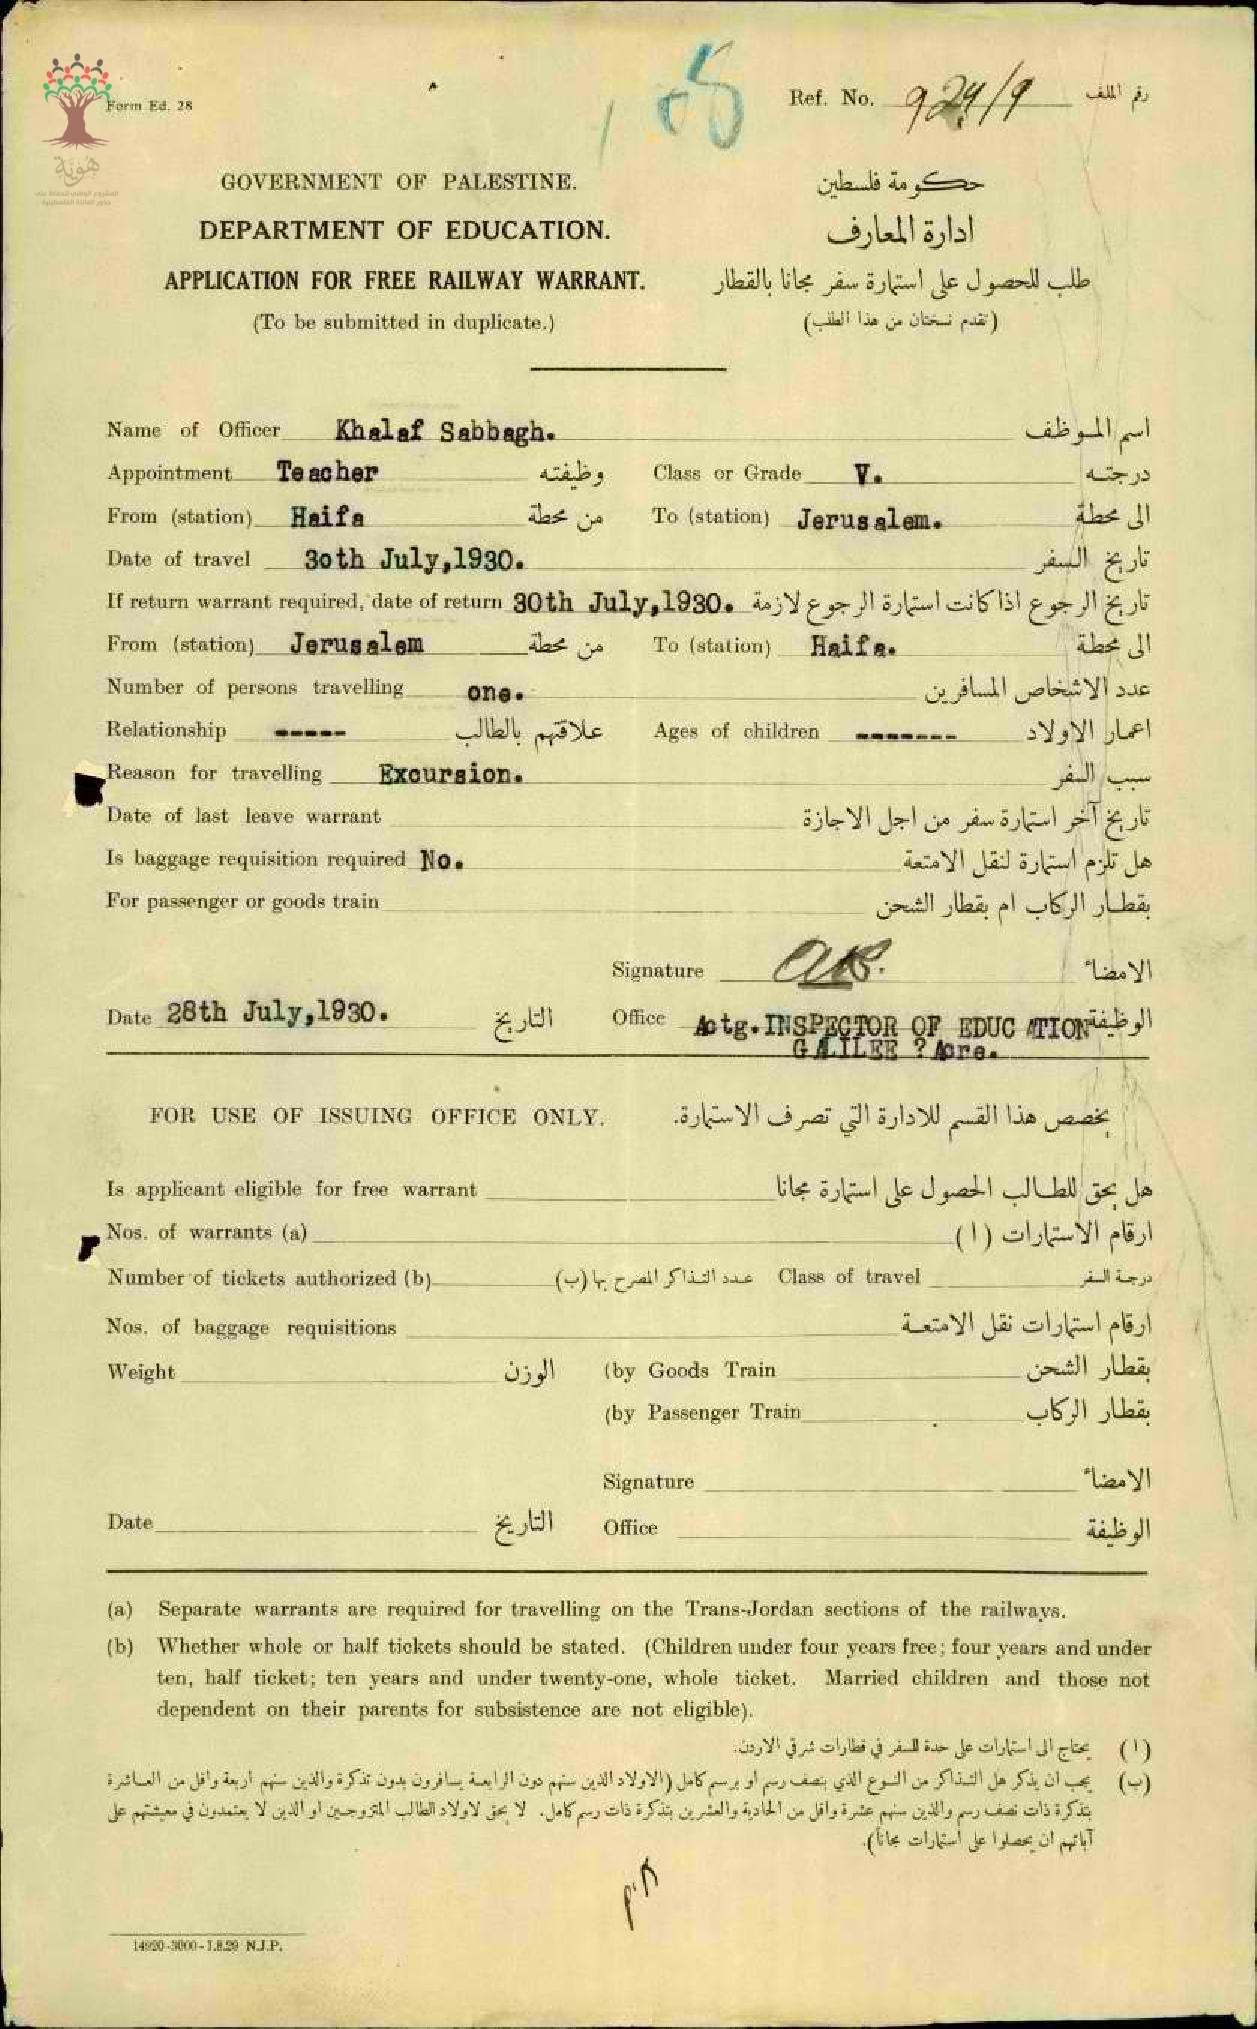 هُوِيَّة
المشروع الوطني للحفاظ على
جذور العائلة الفلسطينية
Form Ed. 28
Ref. No. 924/9 رقم الملف
GOVERNMENT OF PALESTINE. حكومة فلسطين
DEPARTMENT OF EDUCATION. ادارة المعارف
APPLICATION FOR FREE RAILWAY WARRANT. طلب للحصول على استمارة سفر مجانا بالقطار
(To be submitted in duplicate.) (تقدم نسختان من هذا الطلب)
Name of Officer Khalaf Sabbagh. اسم الموظف
Appointment Teacher وظيفته Class or Grade V. درجته
From (station) Haifa من محطة To (station) Jerusalem. الى محطة
Date of travel 3oth July,1930. تاريخ السفر
If return warrant required, date of return 30th July,1930. تاريخ الرجوع اذا كانت استمارة الرجوع لازمة
From (station) Jerusalem من محطة To (station) Haifa. الى محطة
Number of persons travelling one. عدد الاشخاص المسافرين
Relationship ----- علاقتهم بالطالب Ages of children ------- اعمار الاولاد
Reason for travelling Excursion. سبب السفر
Date of last leave warrant تاريخ آخر استمارة سفر من اجل الاجازة
Is baggage requisition required No. هل تلزم استمارة لنقل الامتعة
For passenger or goods train بقطار الركاب ام بقطار الشحن
Signature الامضاء
Date 28th July,1930. التاريخ Office Actg.INSPECTOR OF EDUCATION الوظيفة
GALILEE ?Acre.
FOR USE OF ISSUING OFFICE ONLY. يخصص هذا القسم للادارة التي تصرف الاستمارة.
Is applicant eligible for free warrant هل يحق للطالب الحصول على استمارة مجانا
Nos. of warrants (a) ارقام الاستمارات (ا)
Number of tickets authorized (b) عدد التذاكر المصرح بها (ب) Class of travel درجة السفر
Nos. of baggage requisitions ارقام استمارات نقل الامتعة
Weight الوزن (by Goods Train بقطار الشحن
(by Passenger Train بقطار الركاب
Signature الامضاء
Date التاريخ Office الوظيفة
(a) Separate warrants are required for travelling on the Trans-Jordan sections of the railways.
(b) Whether whole or half tickets should be stated. (Children under four years free; four years and under
ten, half ticket; ten years and under twenty-one, whole ticket. Married children and those not
dependent on their parents for subsistence are not eligible).
(ا) يحتاج الى استمارات على حدة للسفر في قطارات شرقي الاردن.
(ب) يجب ان يذكر هل التذاكر من النوع الذي بنصف رسم او برسم كامل (الاولاد الذين سنهم دون الرابعة يسافرون بدون تذكرة والذين سنهم اربعة واقل من العاشرة
بتذكرة ذات نصف رسم والذين سنهم عشرة واقل من الحادية والعشرين بتذكرة ذات رسم كامل. لا يحق لاولاد الطالب المتزوجين او الذين لا يعتمدون في معيشتهم على
آبائهم ان يحصلوا على استمارات مجانا).
14920-3000-1.8.29 N.J.P.